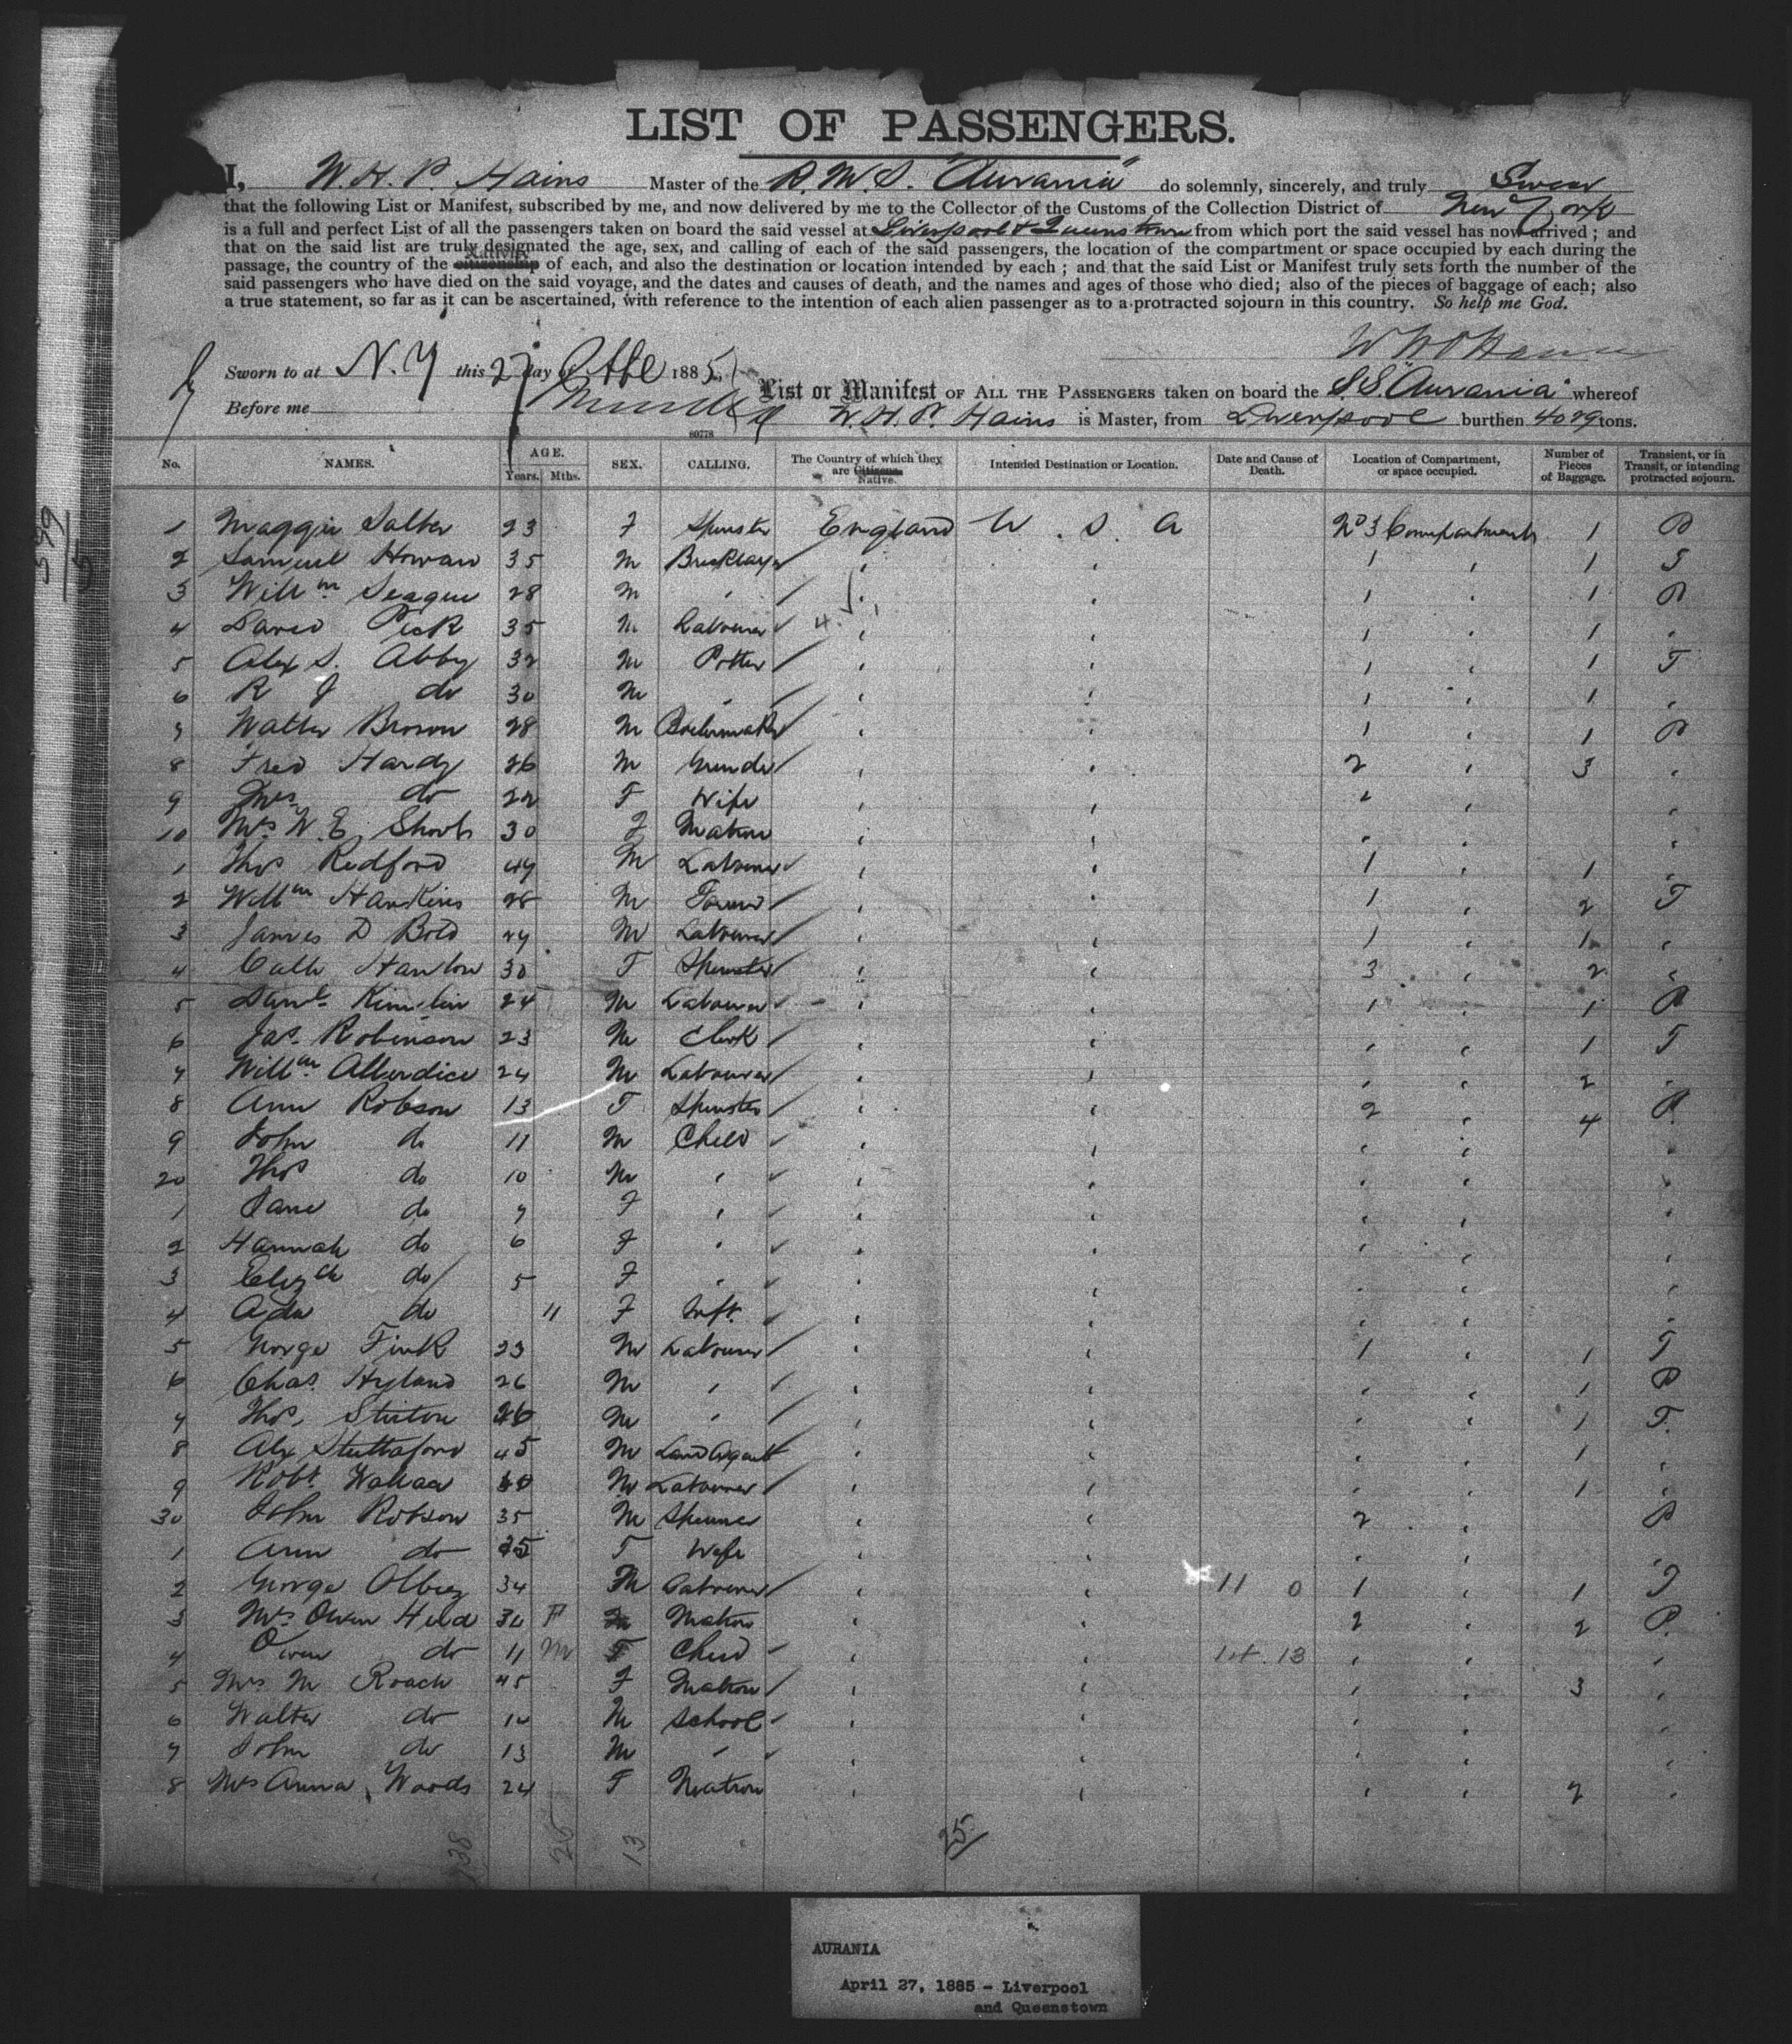 LIST OF PASSENGERS.
I, W. H. P. Hains Master of the R. M. S. "Aurania" do solemnly, sincerely, and truly Swear
that the following List or Manifest, subscribed by me, and now delivered by me to the Collector of the Customs of the Collection District of New York
is a full and perfect List of all the passengers taken on board the said vessel at Liverpool & Queenstown from which port the said vessel has now arrived; and
that on the said list are truly designated the age, sex, and calling of each of the said passengers, the location of the compartment or space occupied by each during the
passage, the country of the citizenship Nativity of each, and also the destination or location intended by each; and that the said List or Manifest truly sets forth the number of the
said passengers who have died on the said voyage, and the dates and causes of death, and the names and ages of those who died; also of the pieces of baggage of each; also
a true statement, so far as it can be ascertained, with reference to the intention of each alien passenger as to a protracted sojourn in this country. So help me God.
Sworn to at N.Y this 27 day of 1885
List or Manifest OF ALL THE PASSENGERS taken on board the S.S. "Aurania" whereof
Before me W. H. P. Hains is Master, from Liverpool burthen 4029 tons.
60778
No. NAMES. AGE. Years. Mths. SEX. CALLING. The Country of which they are Citizens Native. Intended Destination or Location. Date and Cause of Death. Location of Compartment, or space occupied. Number of Pieces of Baggage. Transient, or in Transit, or intending protracted sojourn.
1 Maggie Salter 23 F Spinster England U. S. A No 3 Compartment 1 P
2 Samuel Howard 35 M Bricklayer 1 1 T
3 Willm Seague 28 M 1 1 P
4 David Peck 35 M Labourer 1 1
5 Alex S. Abby 32 M Potter 1 1 T
6 R J do 30 M 1 1
7 Walter Brown 28 M Boilermaker 1 1 P
8 Fred Hardy 26 M Grinder 2 3
9 Mrs do 22 F Wife
10 Mrs W. E. 30 F Matron
1 Thos Redford 49 M Labourer 1 1
2 Willm Hawkins 28 M 1 2 T
3 James D Bold 24 M Labourer 1 1
4 Cath Hanlon 30 F Spinster 3 2
5 Danl Kimlin 24 M Labourer 1 1 P
6 Jas. Robinson 23 M Clerk 1 T
7 Willm Allerdice 24 M Labourer 2
8 Ann Robson 13 F Spinster 2 4 P
9 John do 11 M Child
20 Thos do 10 M
1 Jane do 7 F
2 Hannah do 6 F
3 Elizth do 5 F
4 Ada do 11 F Inft.
5 George Fink 23 M Labourer 1 1 T
6 Chas. Hyland 26 M 1 P
7 Thos. Stirton 26 M 1 T.
8 Alex Stuttaford 45 M Land Agent 1
9 Robt Wallace M Labourer 1
30 John Robson 35 M Spinner 2 P
1 Ann do 35 F Wife
2 George 34 M Labourer 11 0 1 1 T
3 Mrs Owen Held 30 F Matron 2 2 P.
4 Owen do 11 M F Child 14. 13
5 Mrs M Roach 45 F Matron 3
6 Walter do 14 M School
7 John do 13 M
8 Mrs Anna Woods 24 F Matron 2
38 25 13 25
AURANIA
April 27, 1885 - Liverpool
and Queenstown